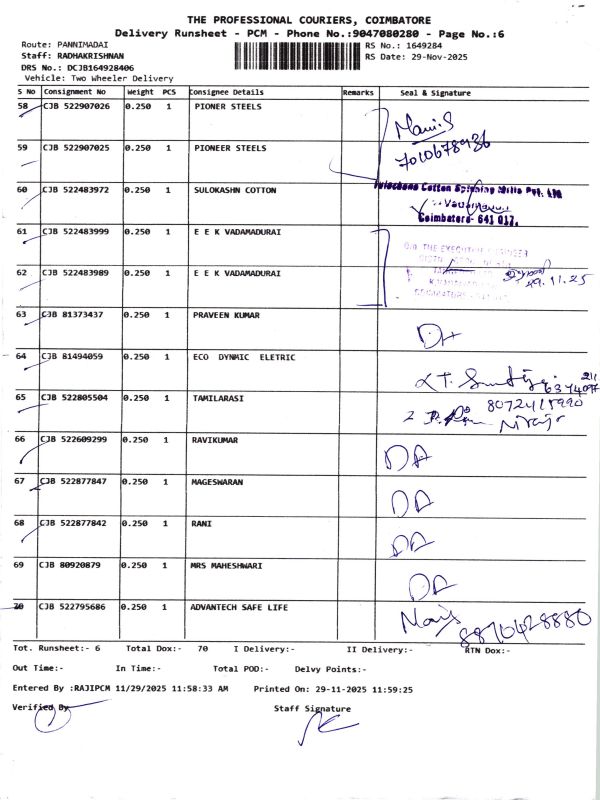 THE PROFESSIONAL COURIERS, COIMBATORE
Delivery Runsheet - PCM - Phone No.:9047080280 - Page No.:6
Route: PANNIMADAI RS No.: 1649284
Staff: RADHAKRISHNAN RS Date: 29-Nov-2025
DRS No.: DCJB164928406
Vehicle: Two Wheeler Delivery
S No Consignment No Weight PCS Consignee Details Remarks Seal & Signature
58 CJB 522907026 0.250 1 PIONER STEELS Mani.S
7010678936
59 CJB 522907025 0.250 1 PIONEER STEELS
60 CJB 522483972 0.250 1 SULOKASHN COTTON Cotton Spinning Mills Pvt. Ltd
Coimbatore- 641 017.
61 CJB 522483999 0.250 1 E E K VADAMADURAI
62 CJB 522483989 0.250 1 E E K VADAMADURAI 29.11.25
63 CJB 81373437 0.250 1 PRAVEEN KUMAR DA
64 CJB 81494059 0.250 1 ECO DYNMIC ELETRIC
65 CJB 522805504 0.250 1 TAMILARASI
66 CJB 522609299 0.250 1 RAVIKUMAR DA
67 CJB 522877847 0.250 1 MAGESWARAN DA
68 CJB 522877842 0.250 1 RANI DA
69 CJB 80920879 0.250 1 MRS MAHESHWARI DA
70 CJB 522795686 0.250 1 ADVANTECH SAFE LIFE 8870428880
Tot. Runsheet:- 6 Total Dox:- 70 I Delivery:- II Delivery:- RTN Dox:-
Out Time:- In Time:- Total POD:- Delvy Points:-
Entered By :RAJIPCM 11/29/2025 11:58:33 AM Printed On: 29-11-2025 11:59:25
Verified By Staff Signature